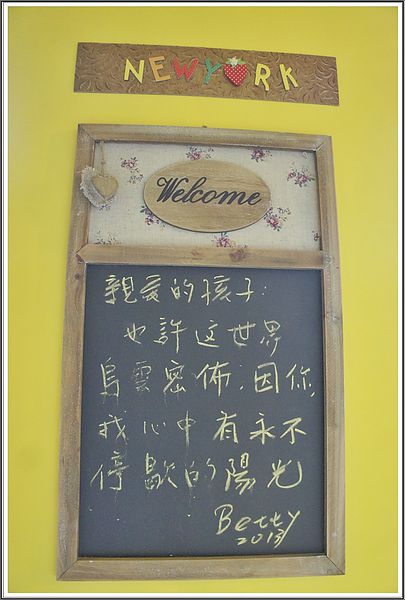 NEWYRK
Welcome
親愛的孩子:
也許这世界
烏雲密佈,因你,
我心中有永不
停歇的陽光
Betty
2013